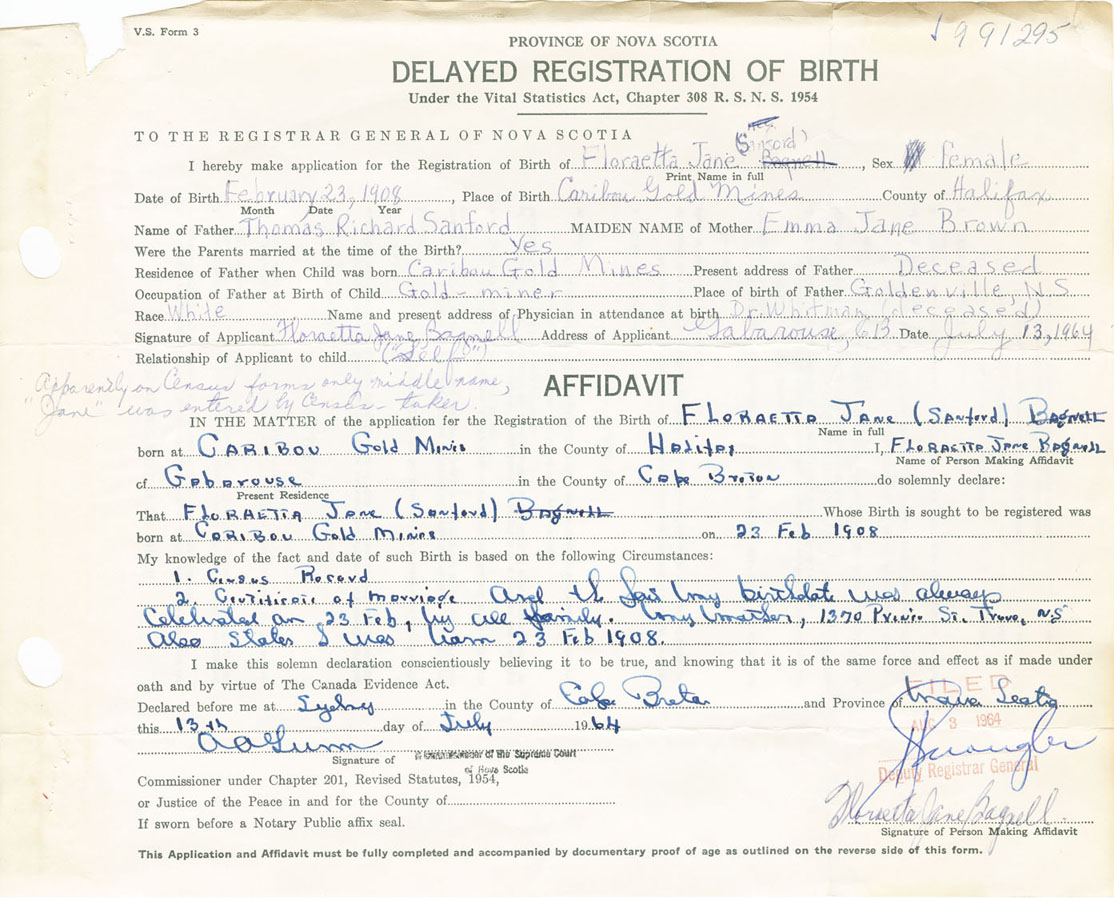 V.S. Form 3
991295
PROVINCE OF NOVA SCOTIA
DELAYED REGISTRATION OF BIRTH
Under the Vital Statistics Act, Chapter 308 R. S. N. S. 1954
TO THE REGISTRAR GENERAL OF NOVA SCOTIA
(Sanford)
I hereby make application for the Registration of Birth of Floraetta Jane Bagnell, Sex Female
Print Name in full
Date of Birth February 23, 1908, Place of Birth Caribou Gold Mines County of Halifax
Month Date Year
Name of Father Thomas Richard Sanford MAIDEN NAME of Mother Emma Jane Brown
Were the Parents married at the time of the Birth? Yes
Residence of Father when Child was born Caribou Gold Mines Present address of Father Deceased
Occupation of Father at Birth of Child Gold-miner Place of birth of Father Goldenville, N.S
Race White Name and present address of Physician in attendance at birth Dr. Whitman (deceased)
Signature of Applicant Floraetta Jane Bagnell Address of Applicant Gabarouse, C B Date July 13, 1964
Relationship of Applicant to child ("Self")
Apparently on Census forms only middle name,
"Jane" was entered by Census-taker.
AFFIDAVIT
IN THE MATTER of the application for the Registration of the Birth of FLORAETTA JANE (Sanford) Bagnell
Name in full
born at CARIBOU Gold Mines in the County of Halifax I, FLORAETTA JANE Bagnell
Name of Person Making Affidavit
of Gabarouse in the County of Cape Breton do solemnly declare:
Present Residence
That FLORAETTA JANE (Sanford) Bagnell Whose Birth is sought to be registered was
born at CARIBOU Gold Mines on 23 Feb 1908
My knowledge of the fact and date of such Birth is based on the following Circumstances:
1. Census Record
2. Certificate of marriage And the fact my birthdate was always
Celebrated on 23 Feb, by all family. My mother, 1370 Prince St. Truro, NS
Also States I was born 23 Feb 1908.
I make this solemn declaration conscientiously believing it to be true, and knowing that it is of the same force and effect as if made under
oath and by virtue of The Canada Evidence Act.
Declared before me at Sydney in the County of Cape Breton and Province of Nova Scotia
FILED
this 13th day of July 1964
AUG 3 1964
Signature of
of the Supreme Court
of Nova Scotia
Deputy Registrar General
Commissioner under Chapter 201, Revised Statutes, 1954,
or Justice of the Peace in and for the County of
Floraetta Jane Bagnell
Signature of Person Making Affidavit
If sworn before a Notary Public affix seal.
This Application and Affidavit must be fully completed and accompanied by documentary proof of age as outlined on the reverse side of this form.